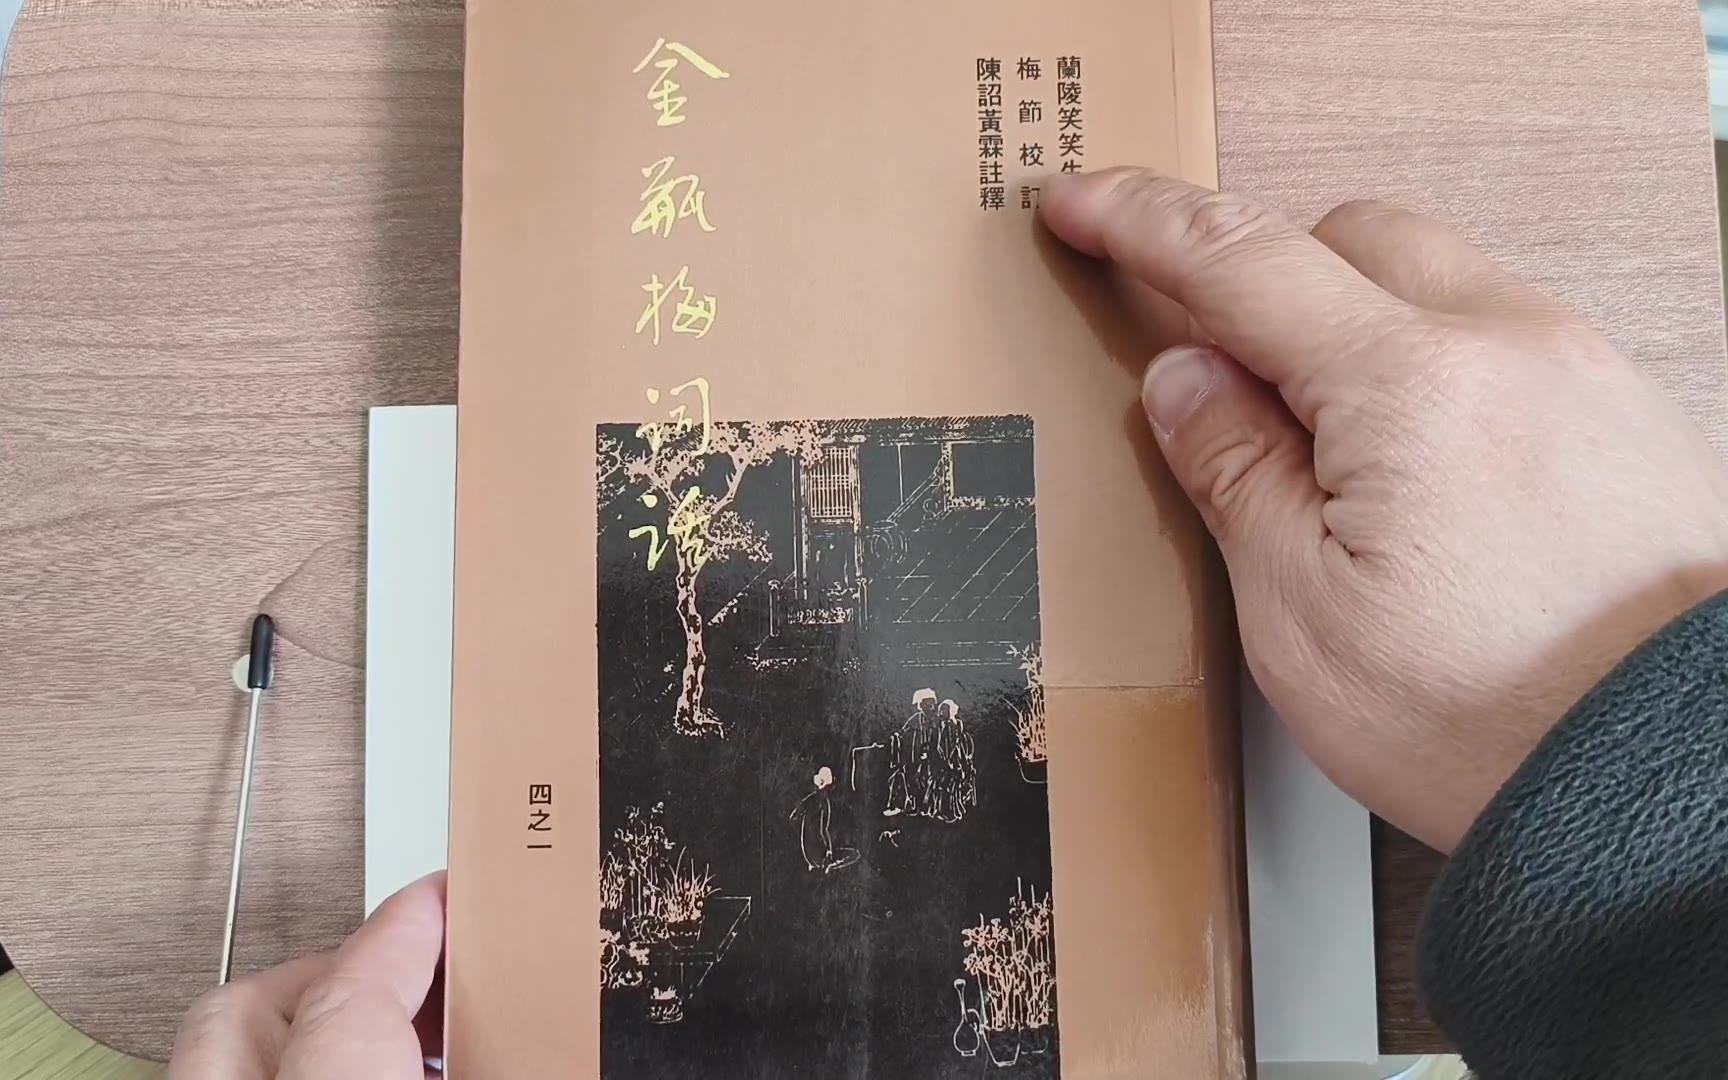 蘭陵笑笑生
梅節校訂
陳詔黃霖註釋
金瓶梅詞話
四之一